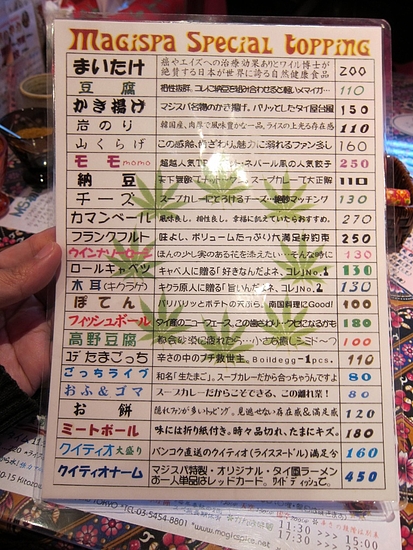 MAGISPA SPECIAL TOPPING
まいたけ 癌やエイズへの治療効果ありとワイル博士が
絶賛する日本が世界に誇る自然健康食品 200
豆腐 相性抜群。コレに納豆を組み合わせると軽いメマイが… 110
かき揚げ マジスパ名物のかき揚げ。パリッとしたタイ屋台風 150
岩のり 韓国産、肉厚で風味豊かな一品。ライスの上光る存在感 110
山くらげ この感触、魅力に溺れるファン多し 160
モモ momo 超越人気 ネパール系の人気餃子 250
納豆 スープカレーにて大正解 110
チーズ スープカレーにとろけるチーズ・絶妙マッチング 130
カマンベール 風味良し、相性良し。幸福に飢えていたらおすすめ。 270
フランクフルト 味よし、ボリュームたっぷり大満足お約束 250
ウインナソーセージ ほんの少し実のある花を添えたい…そんな時に 130
ロールキャベツ キャベ人に贈る「好きなんだよネ、コレ」No.1 130
木耳(キクラゲ) キクラ原人に贈る「旨いんだよネ、コレ」No.2 130
ぽてん パリパリッとポテトの天ぷら。南国料理にGood! 100
フィッシュボール タイ産のニューフェース。この歯ざわり…クセになるかも 180
高野豆腐 都会の砂漠に疲れたら…小さな癒しシミド〜? 100
ユデたまごっち 辛さの中のプチ救世主。Boildegg-1pcs. 110
ごっちライブ 和名「生たまご」。スープカレーだから合っちゃうんですよ 80
おふ&ゴマ スープカレーだからこそできる、この離れ業! 80
お餅 隠れファンが多いトッピング。見逃せない存在感&満足感 120
ミートボール 味には折り紙付き。時々品切れ、たまにキズ。 180
クイティオ大盛り バンコク直送のクイティオ(ライスヌードル)満足分 160
クイティオナーム マジスパ特製・オリジナル・タイ風ラーメン
お一人単品はレッドカード。ワイドディッシュで。 450
TEL・03-5454-8801
11:30 >>> 15:00